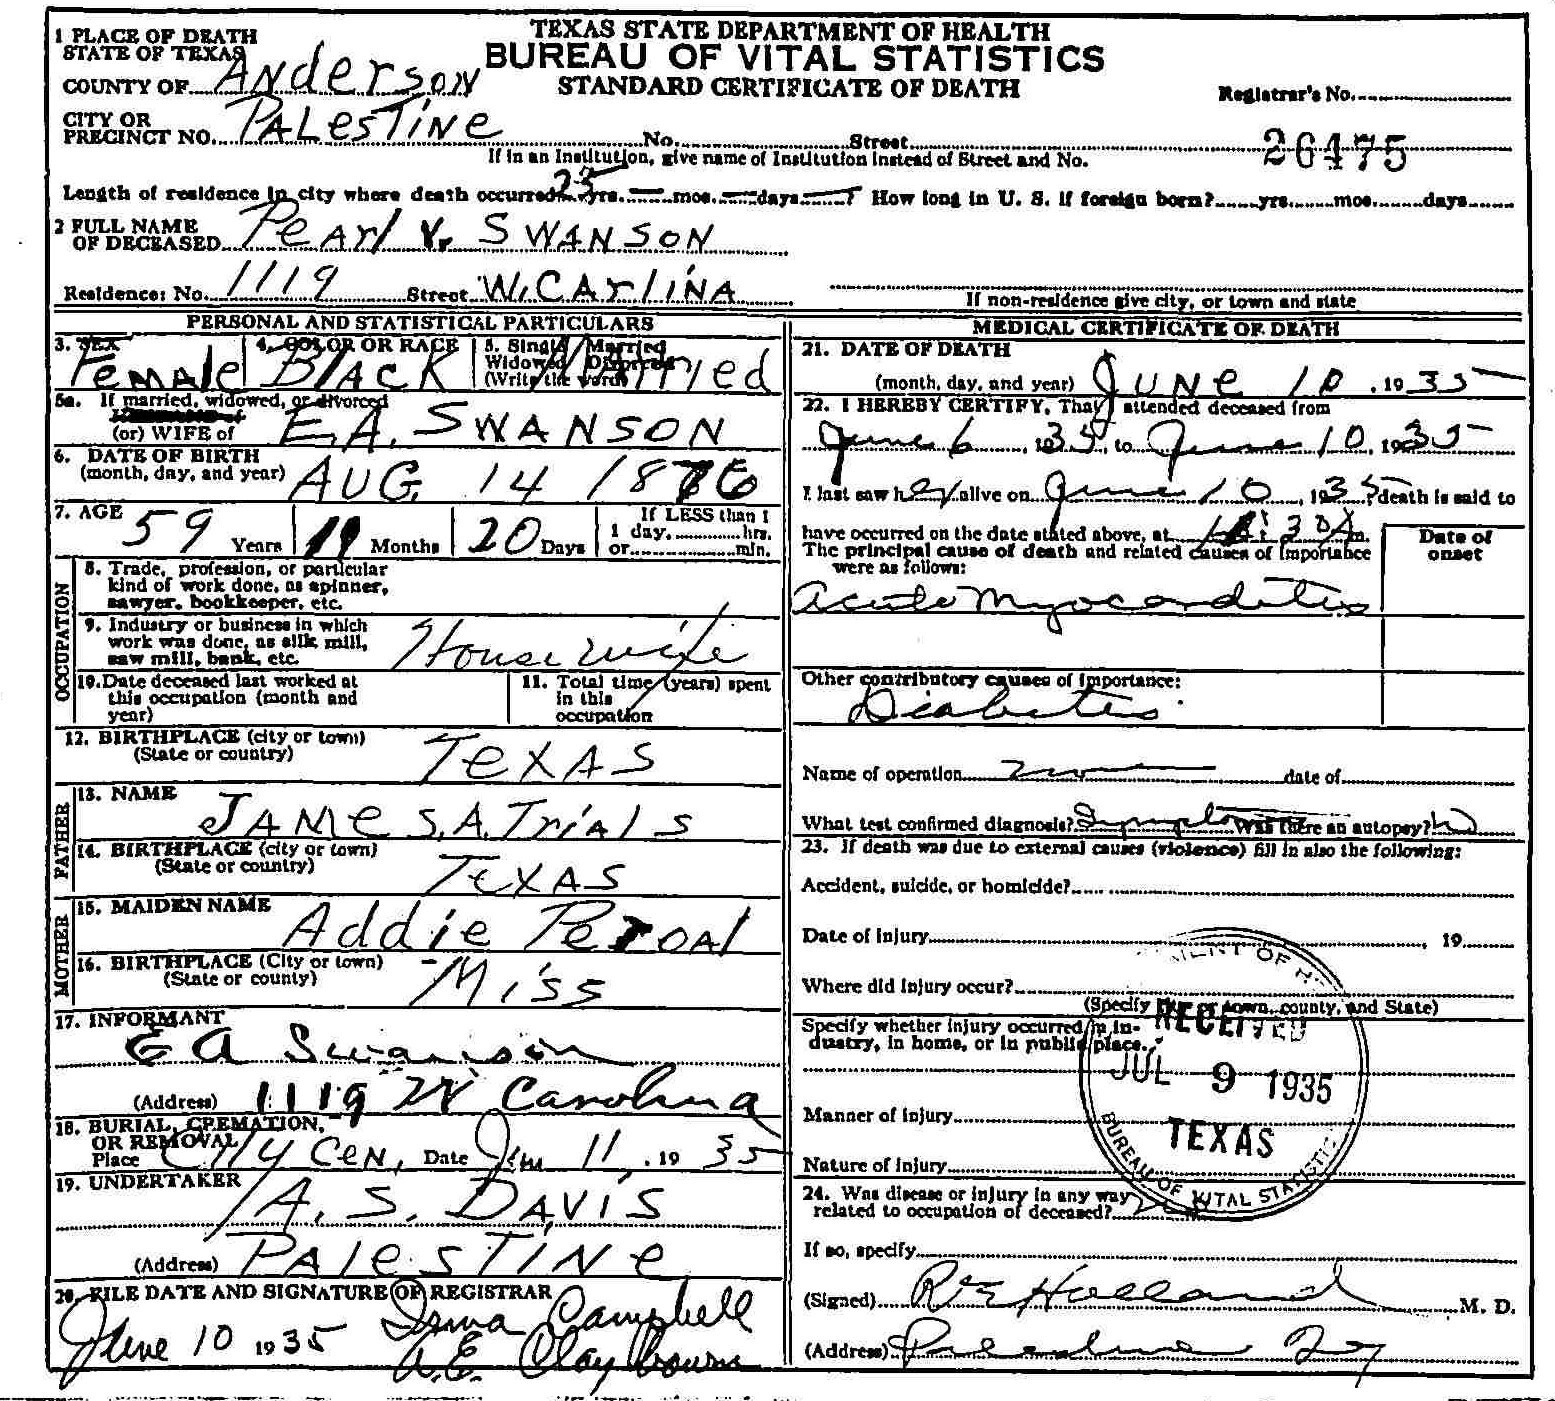 TEXAS STATE DEPARTMENT OF HEALTH
BUREAU OF VITAL STATISTICS
STANDARD CERTIFICATE OF DEATH
1 PLACE OF DEATH
STATE OF TEXAS
COUNTY OF Anderson
Registrar's No.
CITY OR
PRECINCT NO. PALESTINE No. Street
26475
If in an Institution, give name of Institution instead of Street and No.
Length of residence in city where death occurred 25 yrs. — mos. — days — ? How long in U. S. if foreign born? yrs. mos. days
2 FULL NAME
OF DECEASED Pearl V. SWANSON
Residence: No. 1119 Street W. CArlinA
If non-residence give city, or town and state
PERSONAL AND STATISTICAL PARTICULARS
3. SEX Female
4. COLOR OR RACE Black
5. Single Married
Widowed Divorced
(Write the word) Married
5a. If married, widowed, or divorced
(or) WIFE of E.A. SWANSON
6. DATE OF BIRTH
(month, day, and year) AUG 14 1876
7. AGE 59 Years Months 20 Days
If LESS than 1
1 day, hrs.
or min.
OCCUPATION
8. Trade, profession, or particular
kind of work done, as spinner,
sawyer, bookkeeper, etc.
9. Industry or business in which
work was done, as silk mill,
saw mill, bank, etc. Housewife
10. Date deceased last worked at
this occupation (month and
year)
11. Total time (years) spent
in this
occupation
12. BIRTHPLACE (city or town)
(State or country) TEXAS
FATHER
13. NAME JAMES. A. TriAls
14. BIRTHPLACE (city or town)
(State or country) TEXAS
MOTHER
15. MAIDEN NAME Addie
16. BIRTHPLACE (City or town)
(State or county) Miss
17. INFORMANT
E A Swanson
(Address) 1119 W Carolina
18. BURIAL, CREMATION,
OR REMOVAL
Place City Cem, Date Jun 11, 1935
19. UNDERTAKER
A. S. DAVIS
(Address) PAlesTINe
20. FILE DATE AND SIGNATURE OF REGISTRAR
June 10 1935 Irma Campbell
A.E. Claybourn
MEDICAL CERTIFICATE OF DEATH
21. DATE OF DEATH
(month, day, and year) JUNE 10, 1935
22. I HEREBY CERTIFY, That I attended deceased from
June 6, 1935, to June 10, 1935
I last saw her alive on June 10, 1935? death is said to
have occurred on the date stated above, at :30 A m.
The principal cause of death and related causes of importance
were as follows:
Date of
onset
Acute Myocarditis
Other contributory causes of importance:
Diabetes
Name of operation date of
What test confirmed diagnosis? Symptoms Was there an autopsy? No
23. If death was due to external causes (violence) fill in also the following:
Accident, suicide, or homicide?
Date of injury , 19
Where did injury occur?
(Specify city or town, county, and State)
Specify whether injury occurred in in-
dustry, in home, or in public place.
Manner of injury
Nature of injury
DEPARTMENT OF HEALTH
RECEIVED
JUL 9 1935
TEXAS
BUREAU OF VITAL STATISTICS
24. Was disease or injury in any way
related to occupation of deceased? No
If so, specify
(Signed) Holland M. D.
(Address)